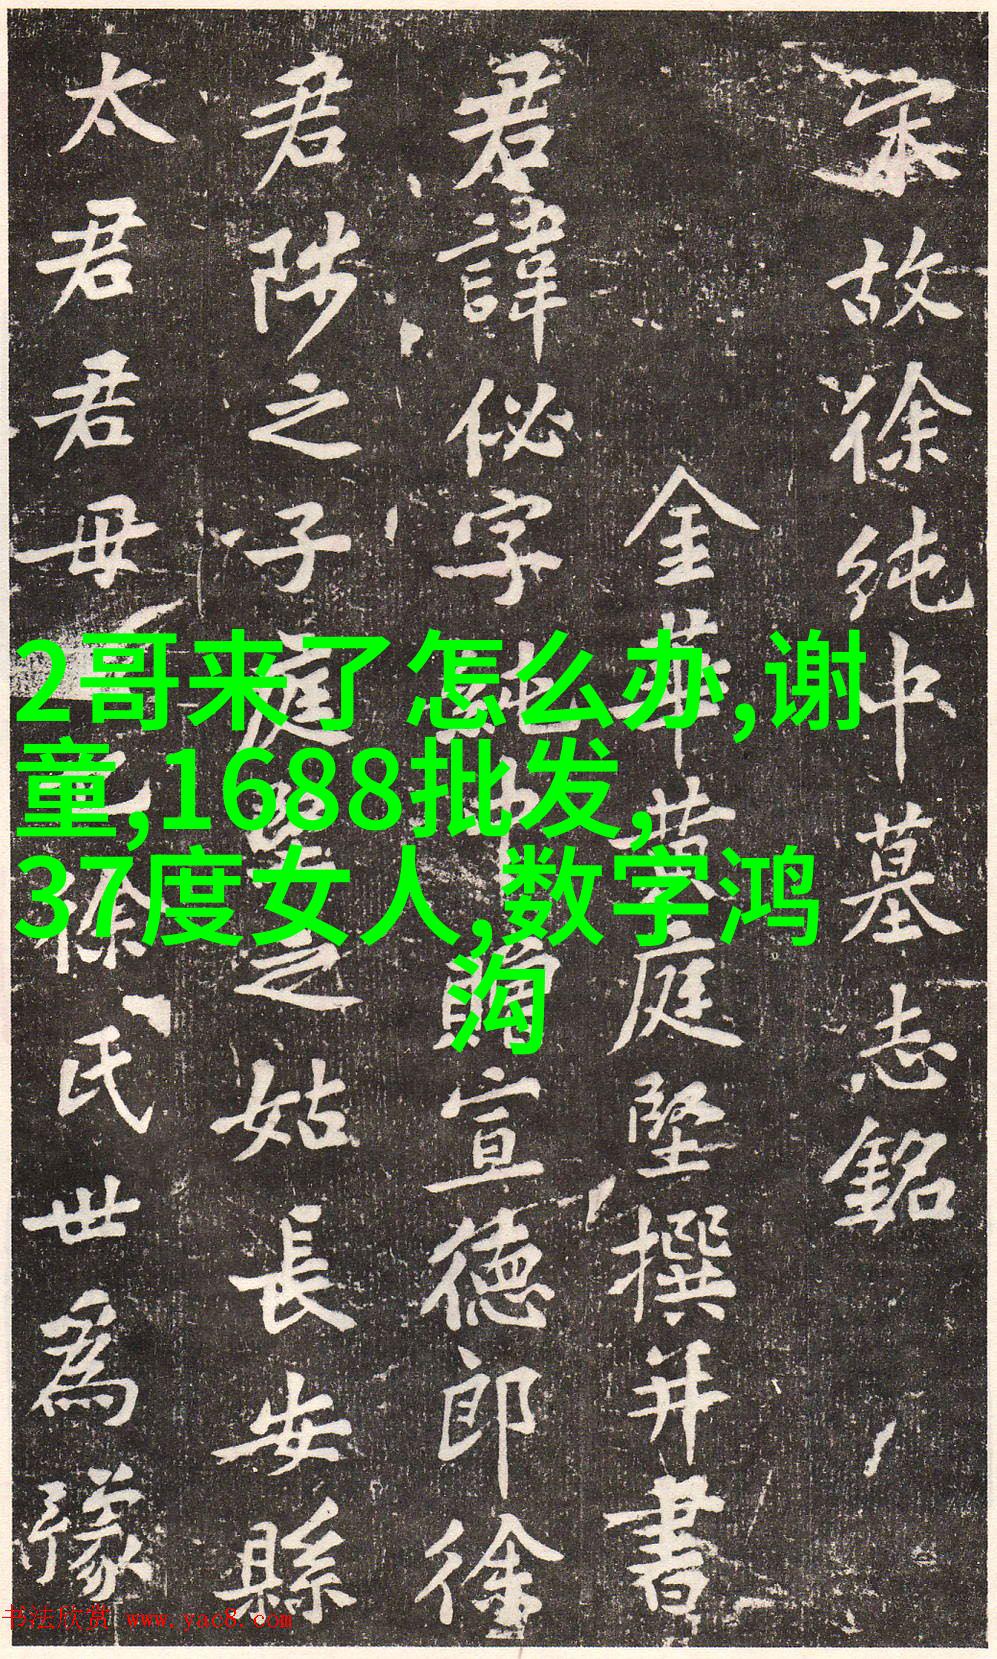 宋故徐純中墓志銘
金華黄庭堅撰并書
君諱佖字純中贈宣德郎徐
君陟之子庭堅之姑長安縣
太君君毋徐氏世為豫
2哥来了怎么办,谢
童,1688批发,
37度女人,数字鸿
沟
书法欣赏 www.yac8.com